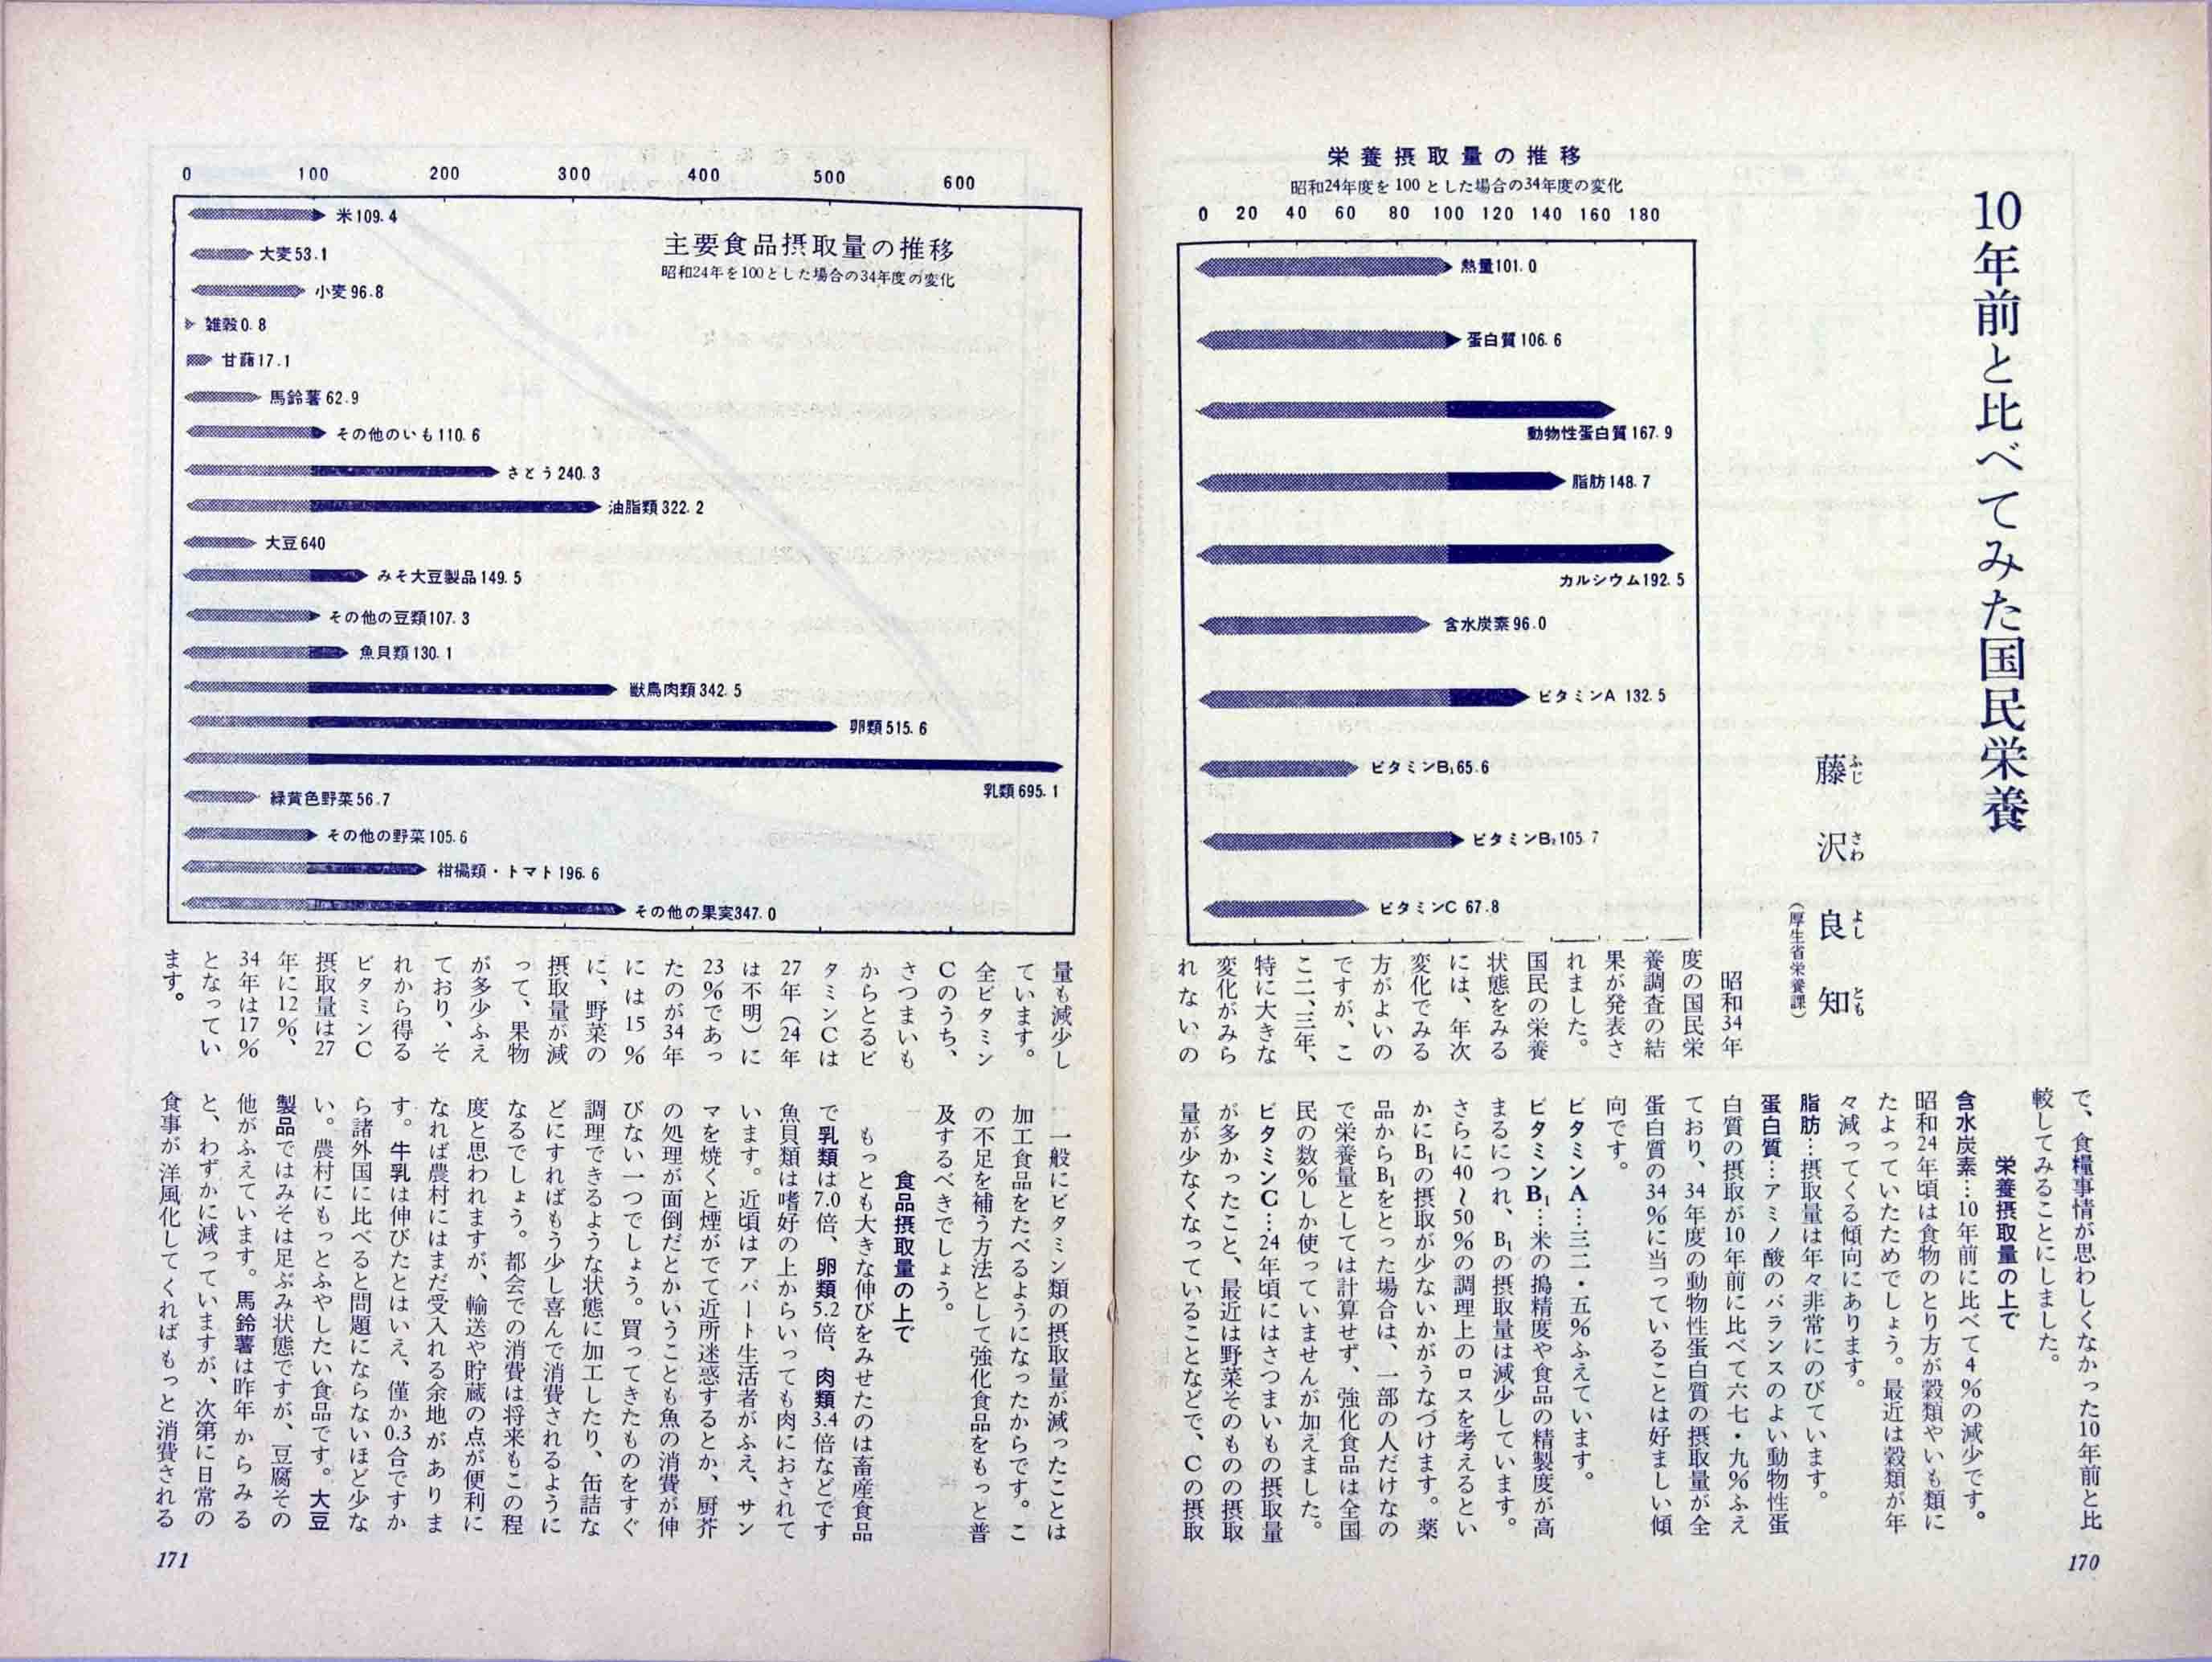 10年前と比べてみた国民栄養
藤沢良知
ふじさわよしとも
（厚生省栄養課）
栄養摂取量の推移
昭和24年度を100とした場合の34年度の変化
0 20 40 60 80 100 120 140 160 180
熱量101.0
蛋白質106.6
動物性蛋白質167.9
脂肪148.7
カルシウム192.5
含水炭素96.0
ビタミンA 132.5
ビタミンB₁65.6
ビタミンB₂105.7
ビタミンC 67.8
昭和34年
度の国民栄
養調査の結
果が発表さ
れました。
国民の栄養
状態をみる
には、年次
変化でみる
方がよいの
ですが、こ
こ二、三年、
特に大きな
変化がみら
れないの
で、食糧事情が思わしくなかった10年前と比
較してみることにしました。
栄養摂取量の上で
含水炭素…10年前に比べて4％の減少です。
昭和24年頃は食物のとり方が穀類やいも類に
たよっていたためでしょう。最近は穀類が年
々減ってくる傾向にあります。
脂肪…摂取量は年々非常にのびています。
蛋白質…アミノ酸のバランスのよい動物性蛋
白質の摂取が10年前に比べて六七・九％ふえ
ており、34年度の動物性蛋白質の摂取量が全
蛋白質の34％に当っていることは好ましい傾
向です。
ビタミンA…三二・五％ふえています。
ビタミンB₁…米の搗精度や食品の精製度が高
まるにつれ、B₁の摂取量は減少しています。
さらに40～50％の調理上のロスを考えるとい
かにB₁の摂取が少ないかがうなづけます。薬
品からB₁をとった場合は、一部の人だけなの
で栄養量としては計算せず、強化食品は全国
民の数％しか使っていませんが加えました。
ビタミンC…24年頃にはさつまいもの摂取量
が多かったこと、最近は野菜そのものの摂取
量が少なくなっていることなどで、Cの摂取
170
0 100 200 300 400 500 600
主要食品摂取量の推移
昭和24年を100とした場合の34年度の変化
米109.4
大麦53.1
小麦96.8
雑穀0.8
甘藷17.1
馬鈴薯62.9
その他のいも110.6
さとう240.3
油脂類322.2
大豆640
みそ大豆製品149.5
その他の豆類107.3
魚貝類130.1
獣鳥肉類342.5
卵類515.6
乳類695.1
緑黄色野菜56.7
その他の野菜105.6
柑橘類・トマト196.6
その他の果実347.0
量も減少し
ています。
全ビタミン
Cのうち、
さつまいも
からとるビ
タミンCは
27年（24年
は不明）に
23％であっ
たのが34年
には15％
に、野菜の
摂取量が減
って、果物
が多少ふえ
ており、そ
れから得る
ビタミンC
摂取量は27
年に12％、
34年は17％
となってい
ます。
一般にビタミン類の摂取量が減ったことは
加工食品をたべるようになったからです。こ
の不足を補う方法として強化食品をもっと普
及するべきでしょう。
食品摂取量の上で
もっとも大きな伸びをみせたのは畜産食品
で乳類は7.0倍、卵類5.2倍、肉類3.4倍などです
魚貝類は嗜好の上からいっても肉におされて
います。近頃はアパート生活者がふえ、サン
マを焼くと煙がでて近所迷惑するとか、厨芥
の処理が面倒だとかいうことも魚の消費が伸
びない一つでしょう。買ってきたものをすぐ
調理できるような状態に加工したり、缶詰な
どにすればもう少し喜んで消費されるように
なるでしょう。都会での消費は将来もこの程
度と思われますが、輸送や貯蔵の点が便利に
なれば農村にはまだ受入れる余地がありま
す。牛乳は伸びたとはいえ、僅か0.3合ですか
ら諸外国に比べると問題にならないほど少な
い。農村にもっとふやしたい食品です。大豆
製品ではみそは足ぶみ状態ですが、豆腐その
他がふえています。馬鈴薯は昨年からみる
と、わずかに減っていますが、次第に日常の
食事が洋風化してくればもっと消費される
171